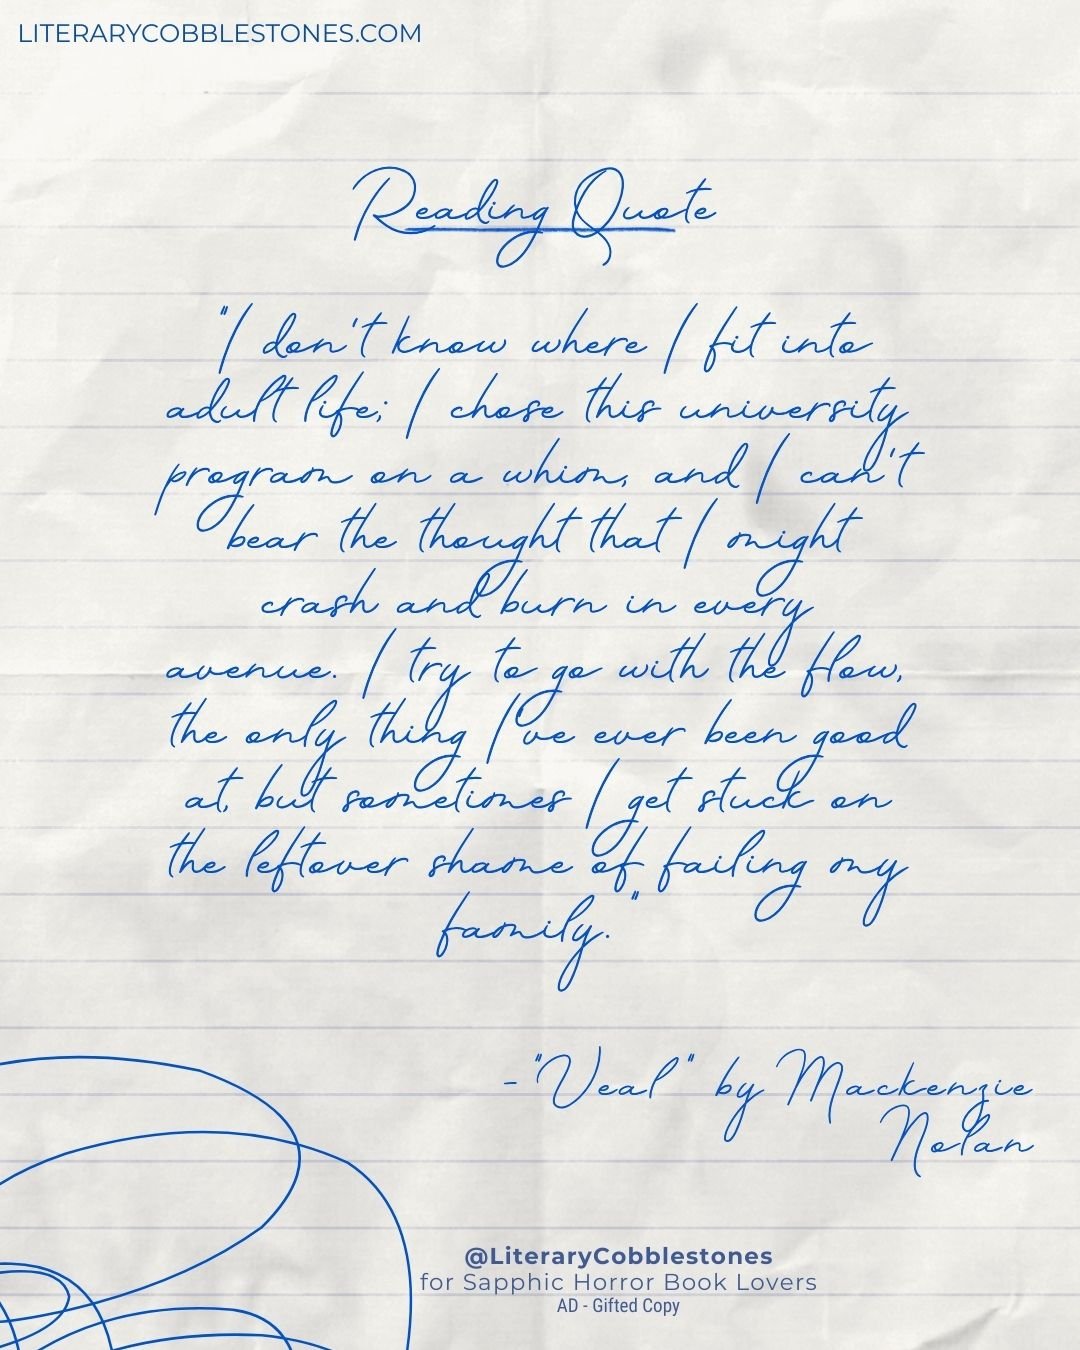 LITERARYCOBBLESTONES.COM
Reading Quote
"I don't know where I fit into
adult life; I chose this university
program on a whim, and I can't
bear the thought that I might
crash and burn in every
avenue. I try to go with the flow,
the only thing I've ever been good
at, but sometimes I get stuck on
the leftover shame of failing my
family."
-"Veal" by Mackenzie
Nolan
@LiteraryCobblestones
for Sapphic Horror Book Lovers
AD - Gifted Copy